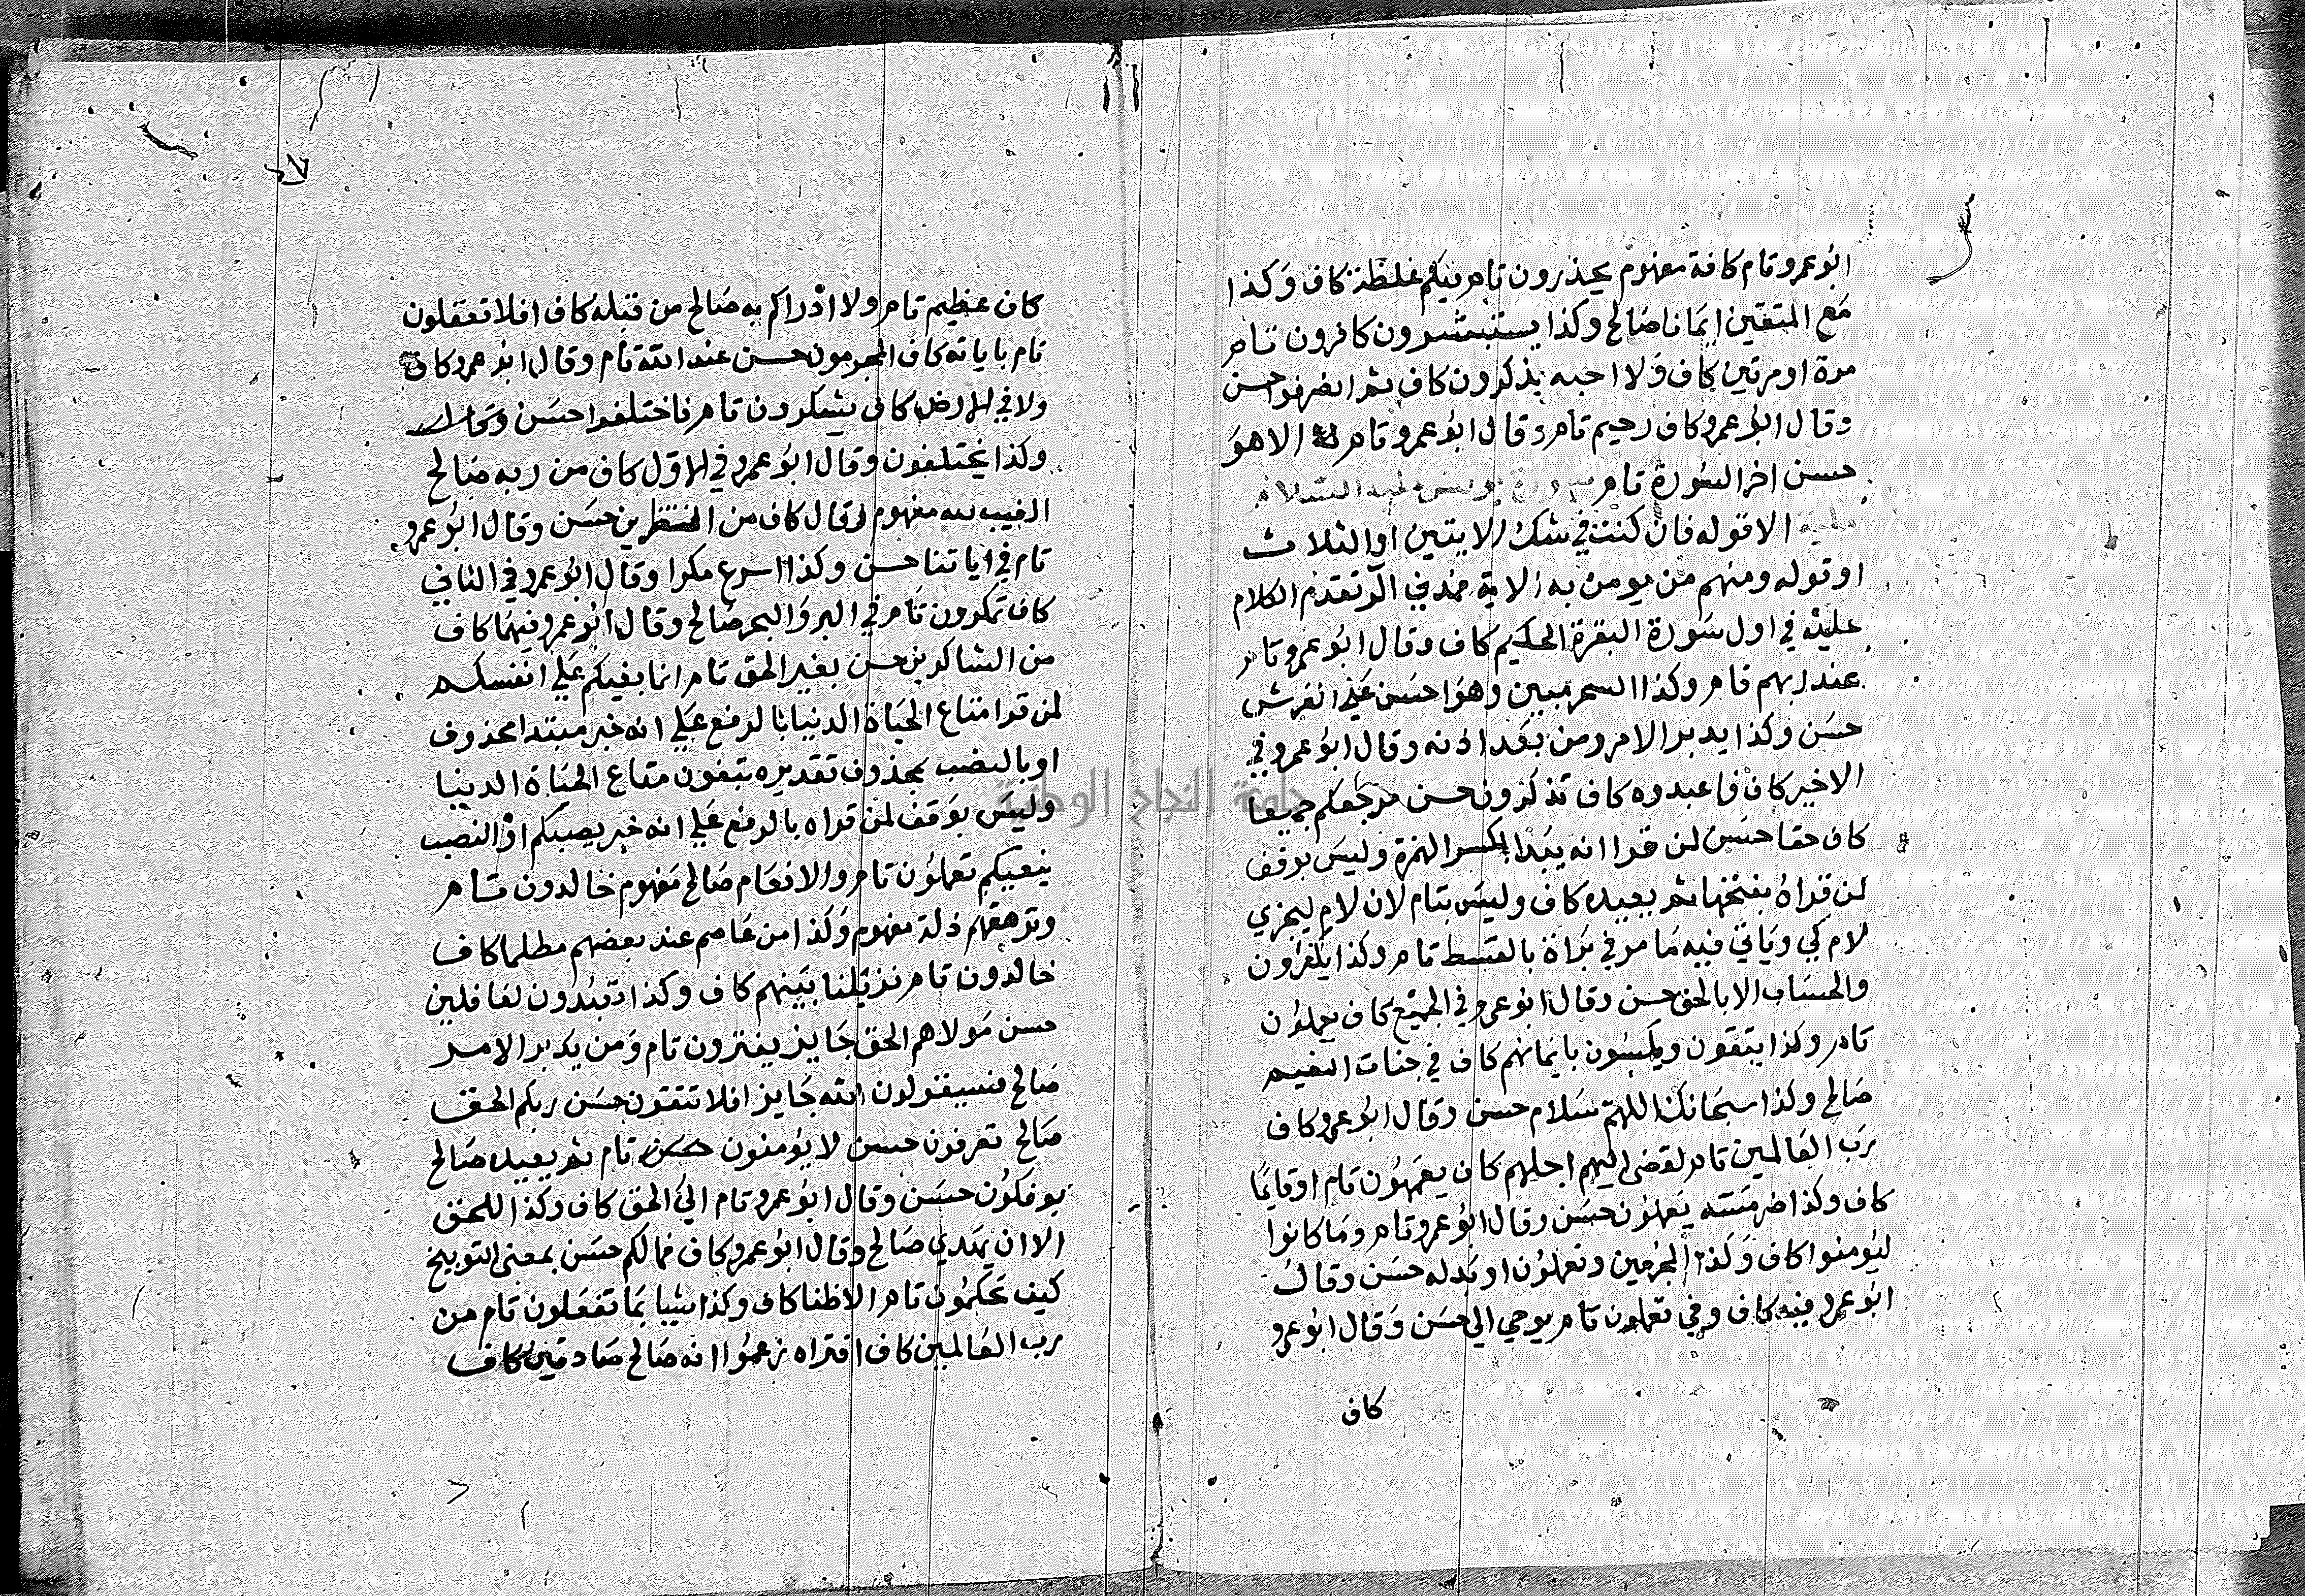 ابو عمرو تام كافة مفهوم يحذرون تام فيكم غلظة كاف وكذا
مع المتقين ايمانا صالح وكذا يستبشرون كافرون تام
مرة او مرتين كاف ولا احبه يذكرون كاف ثم انصرفوا حسن
وقال ابو عمرو كاف رحيم تام وقال ابو عمرو تام الا هو
حسن اخر السورة تام سورة يونس عليه السلام
مكية الا قوله فان كنت في شك الايتين او الثلاث
او قوله ومنهم من يومن به الاية فمدني الر تقدم الكلام
عليه في اول سورة البقرة الحكيم كاف وقال ابو عمرو تام
عند ربهم تام وكذا السحر مبين وهو احسن على العرش
حسن وكذا يدبر الامر ومن بعد اذنه وقال ابو عمرو في
الاخير كاف فاعبدوه كاف تذكرون حسن مرجعكم جميعا
كاف حقا حسن لمن قرا انه يبدا بكسر الهمزة وليس بوقف
لمن قراه بفتحها ثم يعيده كاف وليس بتام لان لام ليجزي
لام كي وياتي فيه ما مر في براة بالقسط تام وكذا يكفرون
والحساب الا بالحق حسن وقال ابو عمرو في الجميع كاف يعملون
تام وكذا يتقون ويكسبون بايمانهم كاف في جنات النعيم
صالح وكذا سبحانك اللهم سلام حسن وقال ابو عمرو كاف
رب العالمين تام لقضى اليهم اجلهم كاف يعمهون تام او قايما
كاف وكذا ضر مسه يعملون حسن وقال ابو عمرو تام وما كانوا
ليومنوا كاف وكذا المجرمين وتعملون او بدله حسن وقال
ابو عمرو فيه كاف وفي تعملون تام يوحي الي حسن وقال ابو عمرو
كاف
كاف عظيم تام ولا ادراكم به صالح من قبله كاف افلا تعقلون
تام باياته كاف المجرمون حسن عند الله تام وقال ابو عمرو كاف
ولا في الارض كاف يشركون تام فاختلفوا حسن
وكذا يختلفون وقال ابو عمرو في الاول كاف من ربه صالح
الغيب لله مفهوم وقال كاف من المنتظرين حسن وقال ابو عمرو
تام في اياتنا حسن وكذا اسرع مكرا وقال ابو عمرو في الثاني
كاف تمكرون تام في البر والبحر صالح وقال ابو عمرو فيهما كاف
من الشاكرين حسن بغير الحق تام انما بغيكم على انفسكم
لمن قرا متاع الحياة الدنيا بالرفع على انه خبر مبتدا محذوف
او بالنصب بمحذوف تقديره تبغون متاع الحياة الدنيا
وليس بوقف لمن قراه بالرفع على انه خبر بغيكم او النصب
ببغيكم تعملون تام والانعام صالح مفهوم خالدون تام
وترهقهم ذلة مفهوم وكذا من عاصم عند بعضهم مظلما كاف
خالدون تام فزيلنا بينهم كاف وكذا تعبدون لغافلين
حسن مولاهم الحق جايز يفترون تام ومن يدبر الامر
صالح فسيقولون الله جايز افلا تتقون حسن ربكم الحق
صالح تعرفون حسن لا يؤمنون تام ثم يعيده صالح
يوفكون حسن وقال ابو عمرو تام الى الحق كاف وكذا للحق
الا ان يهدي صالح وقال ابو عمرو كاف فما لكم حسن بمعنى التوبيخ
كيف تحكمون تام الا ظنا كاف وكذا شيا بما تفعلون تام من
رب العالمين كاف افتراه زعموا انه صالح صادقين كاف
جامعة النجاح الوطنية